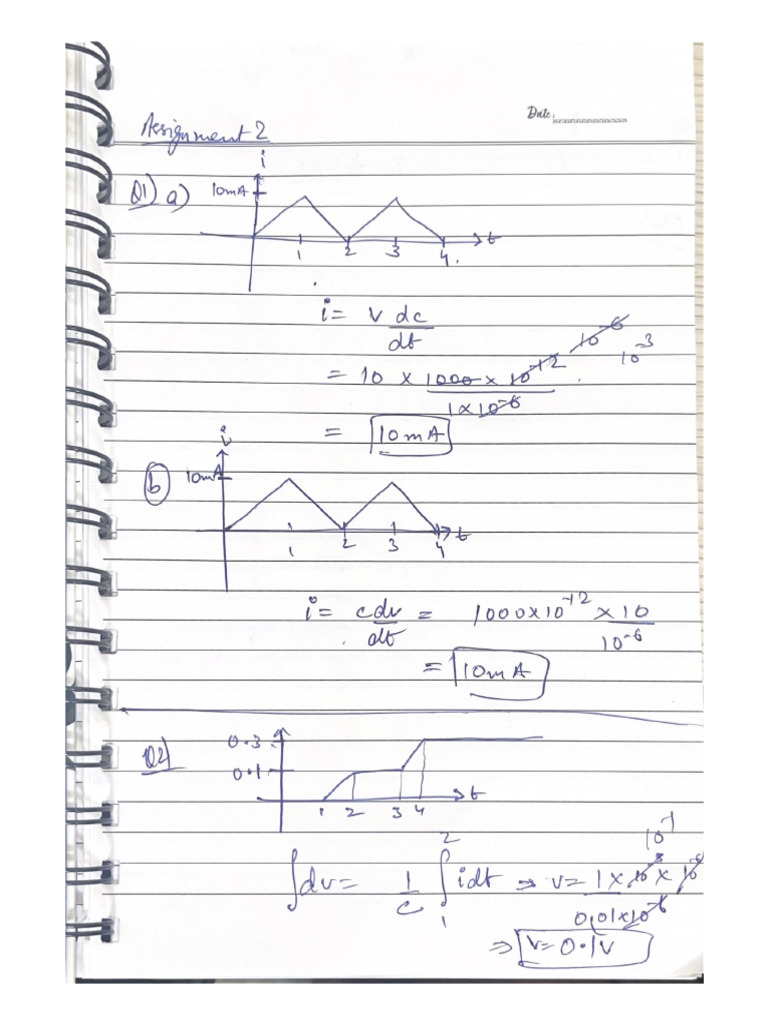 Date:
Assignment 2
i
Q1) a) 10mA
t
1 2 3 4.
i = v dc/dt
= 10 × 1000 × 10^-12 / 1×10^-6 10^-6 10^-3
= 10mA
i
b 10mA
t
1 2 3 4
i = cdv/dt = 1000×10^-12 × 10/10^-6
= 10mA
Q2) 0.3
0.1
t
1 2 3 4
10^-1
∫dv = 1/c ∫_1^2 idt ⇒ v = 1 × 10^-3 × 10^-6 / 0.01×10^-6
⇒ v=0.1v